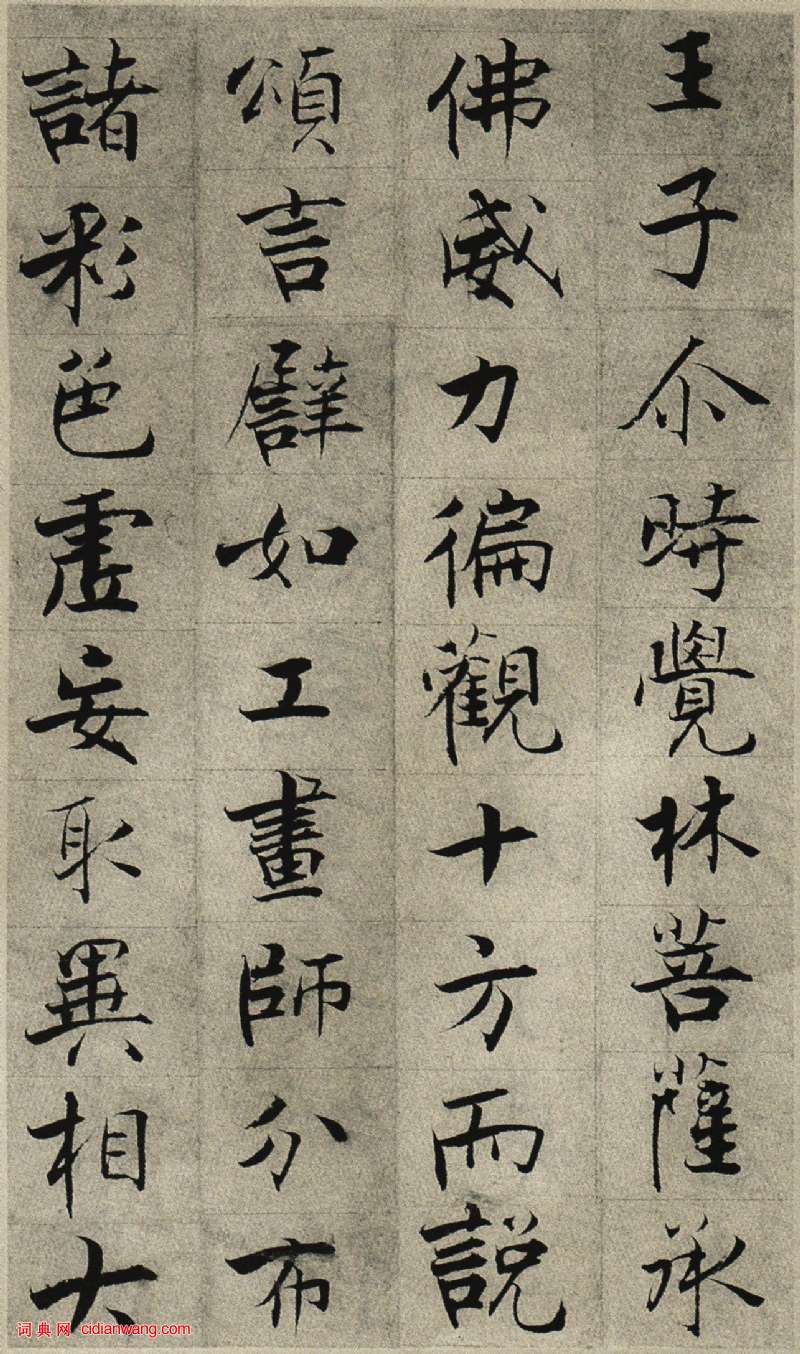 王子尒時覺林菩薩承
佛威力徧觀十方而説
頌言譬如工畫師分布
諸彩色虛妄取異相大
词典网 cidianwang.com